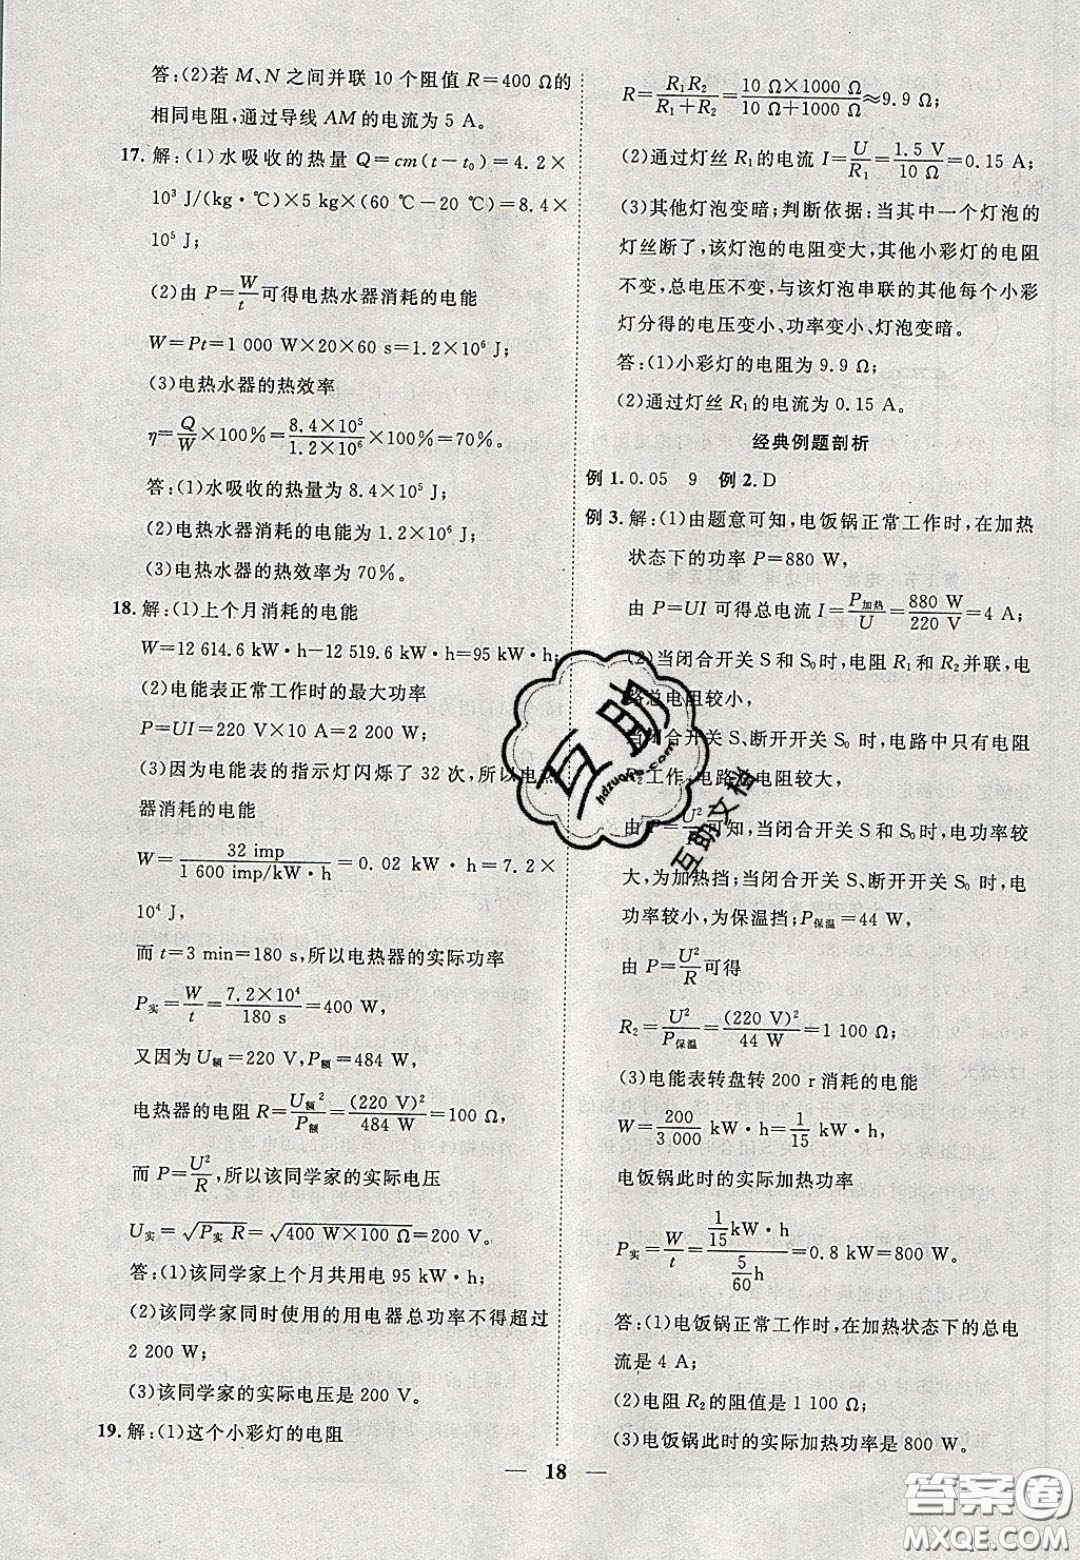 答:(2)若 M、N 之间并联 10 个阻值 R=400 Ω的
相同电阻,通过导线 AM 的电流为 5 A。
17. 解:(1)水吸收的热量 Q=cm(t-t₀)=4.2×
10³ J/(kg·℃)×5 kg×(60 ℃-20 ℃)=8.4×
10⁵ J;
(2)由 P=W/t可得电热水器消耗的电能
W=Pt=1 000 W×20×60 s=1.2×10⁶ J;
(3)电热水器的热效率
η=Q/W×100%=8.4×10⁵/1.2×10⁶×100%=70%。
答:(1)水吸收的热量为 8.4×10⁵ J;
(2)电热水器消耗的电能为 1.2×10⁶ J;
(3)电热水器的热效率为 70%。
18. 解:(1)上个月消耗的电能
W=12 614.6 kW·h-12 519.6 kW·h=95 kW·h;
(2)电能表正常工作时的最大功率
P=UI=220 V×10 A=2 200 W;
(3)因为电能表的指示灯闪烁了 32 次,所以电热
器消耗的电能
W=32 imp/1 600 imp/kW·h=0.02 kW·h=7.2×
10⁴ J,
而 t=3 min=180 s,所以电热器的实际功率
P实=W/t=7.2×10⁴/180 s=400 W,
又因为 U额=220 V,P额=484 W,
电热器的电阻 R=U额²/P额=(220 V)²/484 W=100 Ω,
而 P=U²/R,所以该同学家的实际电压
U实=√P实 R=√400 W×100 Ω=200 V。
答:(1)该同学家上个月共用电 95 kW·h;
(2)该同学家同时使用的用电器总功率不得超过
2 200 W;
(3)该同学家的实际电压是 200 V。
19. 解:(1)这个小彩灯的电阻
R=R₁R₂/R₁+R₂=10 Ω×1000 Ω/10 Ω+1000 Ω≈9.9 Ω;
(2)通过灯丝 R₁的电流 I=U/R₁=1.5 V/10 Ω=0.15 A;
(3)其他灯泡变暗;判断依据:当其中一个灯泡的
灯丝断了,该灯泡的电阻变大,其他小彩灯的电阻
不变,总电压不变,与该灯泡串联的其他每个小彩
灯分得的电压变小、功率变小、灯泡变暗。
答:(1)小彩灯的电阻为 9.9 Ω;
(2)通过灯丝 R₁的电流为 0.15 A。
经典例题剖析
例 1. 0.05 9 例 2. D
例 3. 解:(1)由题意可知,电饭锅正常工作时,在加热
状态下的功率 P=880 W,
由 P=UI 可得总电流 I=P加热/U=880 W/220 V=4 A;
(2)当闭合开关 S 和 S₀时,电阻 R₁和 R₂并联,电
路总电阻较小,
当闭合开关 S、断开开关 S₀ 时,电路中只有电阻
R₂工作,电路总电阻较大,
由 P=U²/R可知,当闭合开关 S、S₀时,电功率较
大,为加热挡;当闭合开关 S、断开开关 S₀ 时,电
功率较小,为保温挡;P保温=44 W,
由 P=U²/R可得
R₂=U²/P保温=(220 V)²/44 W=1 100 Ω;
(3)电能表转盘转 200 r 消耗的电能
W=200/3 000 kW·h=1/15 kW·h,
电饭锅此时的实际加热功率
P实=W/t=1/15 kW·h/5/60 h=0.8 kW=800 W。
答:(1)电饭锅正常工作时,在加热状态下的总电
流是 4 A;
(2)电阻 R₂的阻值是 1 100 Ω;
(3)电饭锅此时的实际加热功率是 800 W。
— 18 —
互助
hdzuoye.com
互助文档
答案圈
MXQE.COM